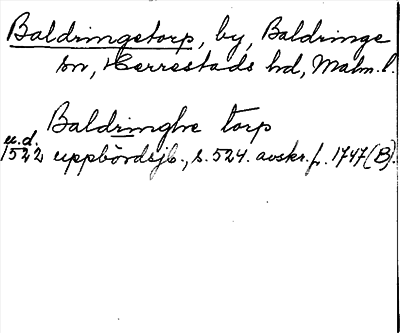 Baldringetorp, by, Baldringe
sn, Herrestads hd, Malm.l.
Baldringhe torp
u.d.
1522 uppbördsjb., s. 524. avskr. fr. 1747 (B).